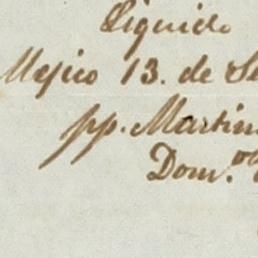 Liquido
Mejico 13. de Se
pp. Martin
Dom.º